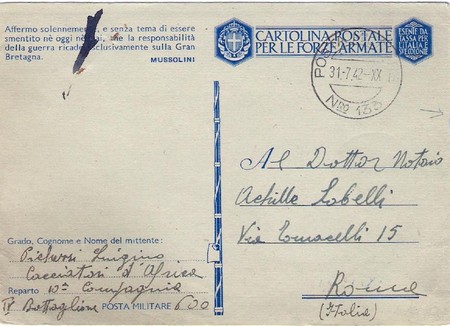 Affermo solennemente, e senza tema di essere
smentito nè oggi nè mai, che la responsabilità
della guerra ricade esclusivamente sulla Gran
Bretagna.
MUSSOLINI
CARTOLINA POSTALE
PER LE FORZE ARMATE
ESENTE DA
TASSA PER
L'ITALIA
E
31.7.42-XX
N.RO 133
Al Dottor Notaio
Achille Lobelli
Via Tomacelli 15
Roma
(Italia)
Grado, Cognome e Nome del mittente:
Luigino
Cacciatori d'Africa
Reparto 10ª Compagnia
IV Battaglione POSTA MILITARE 600